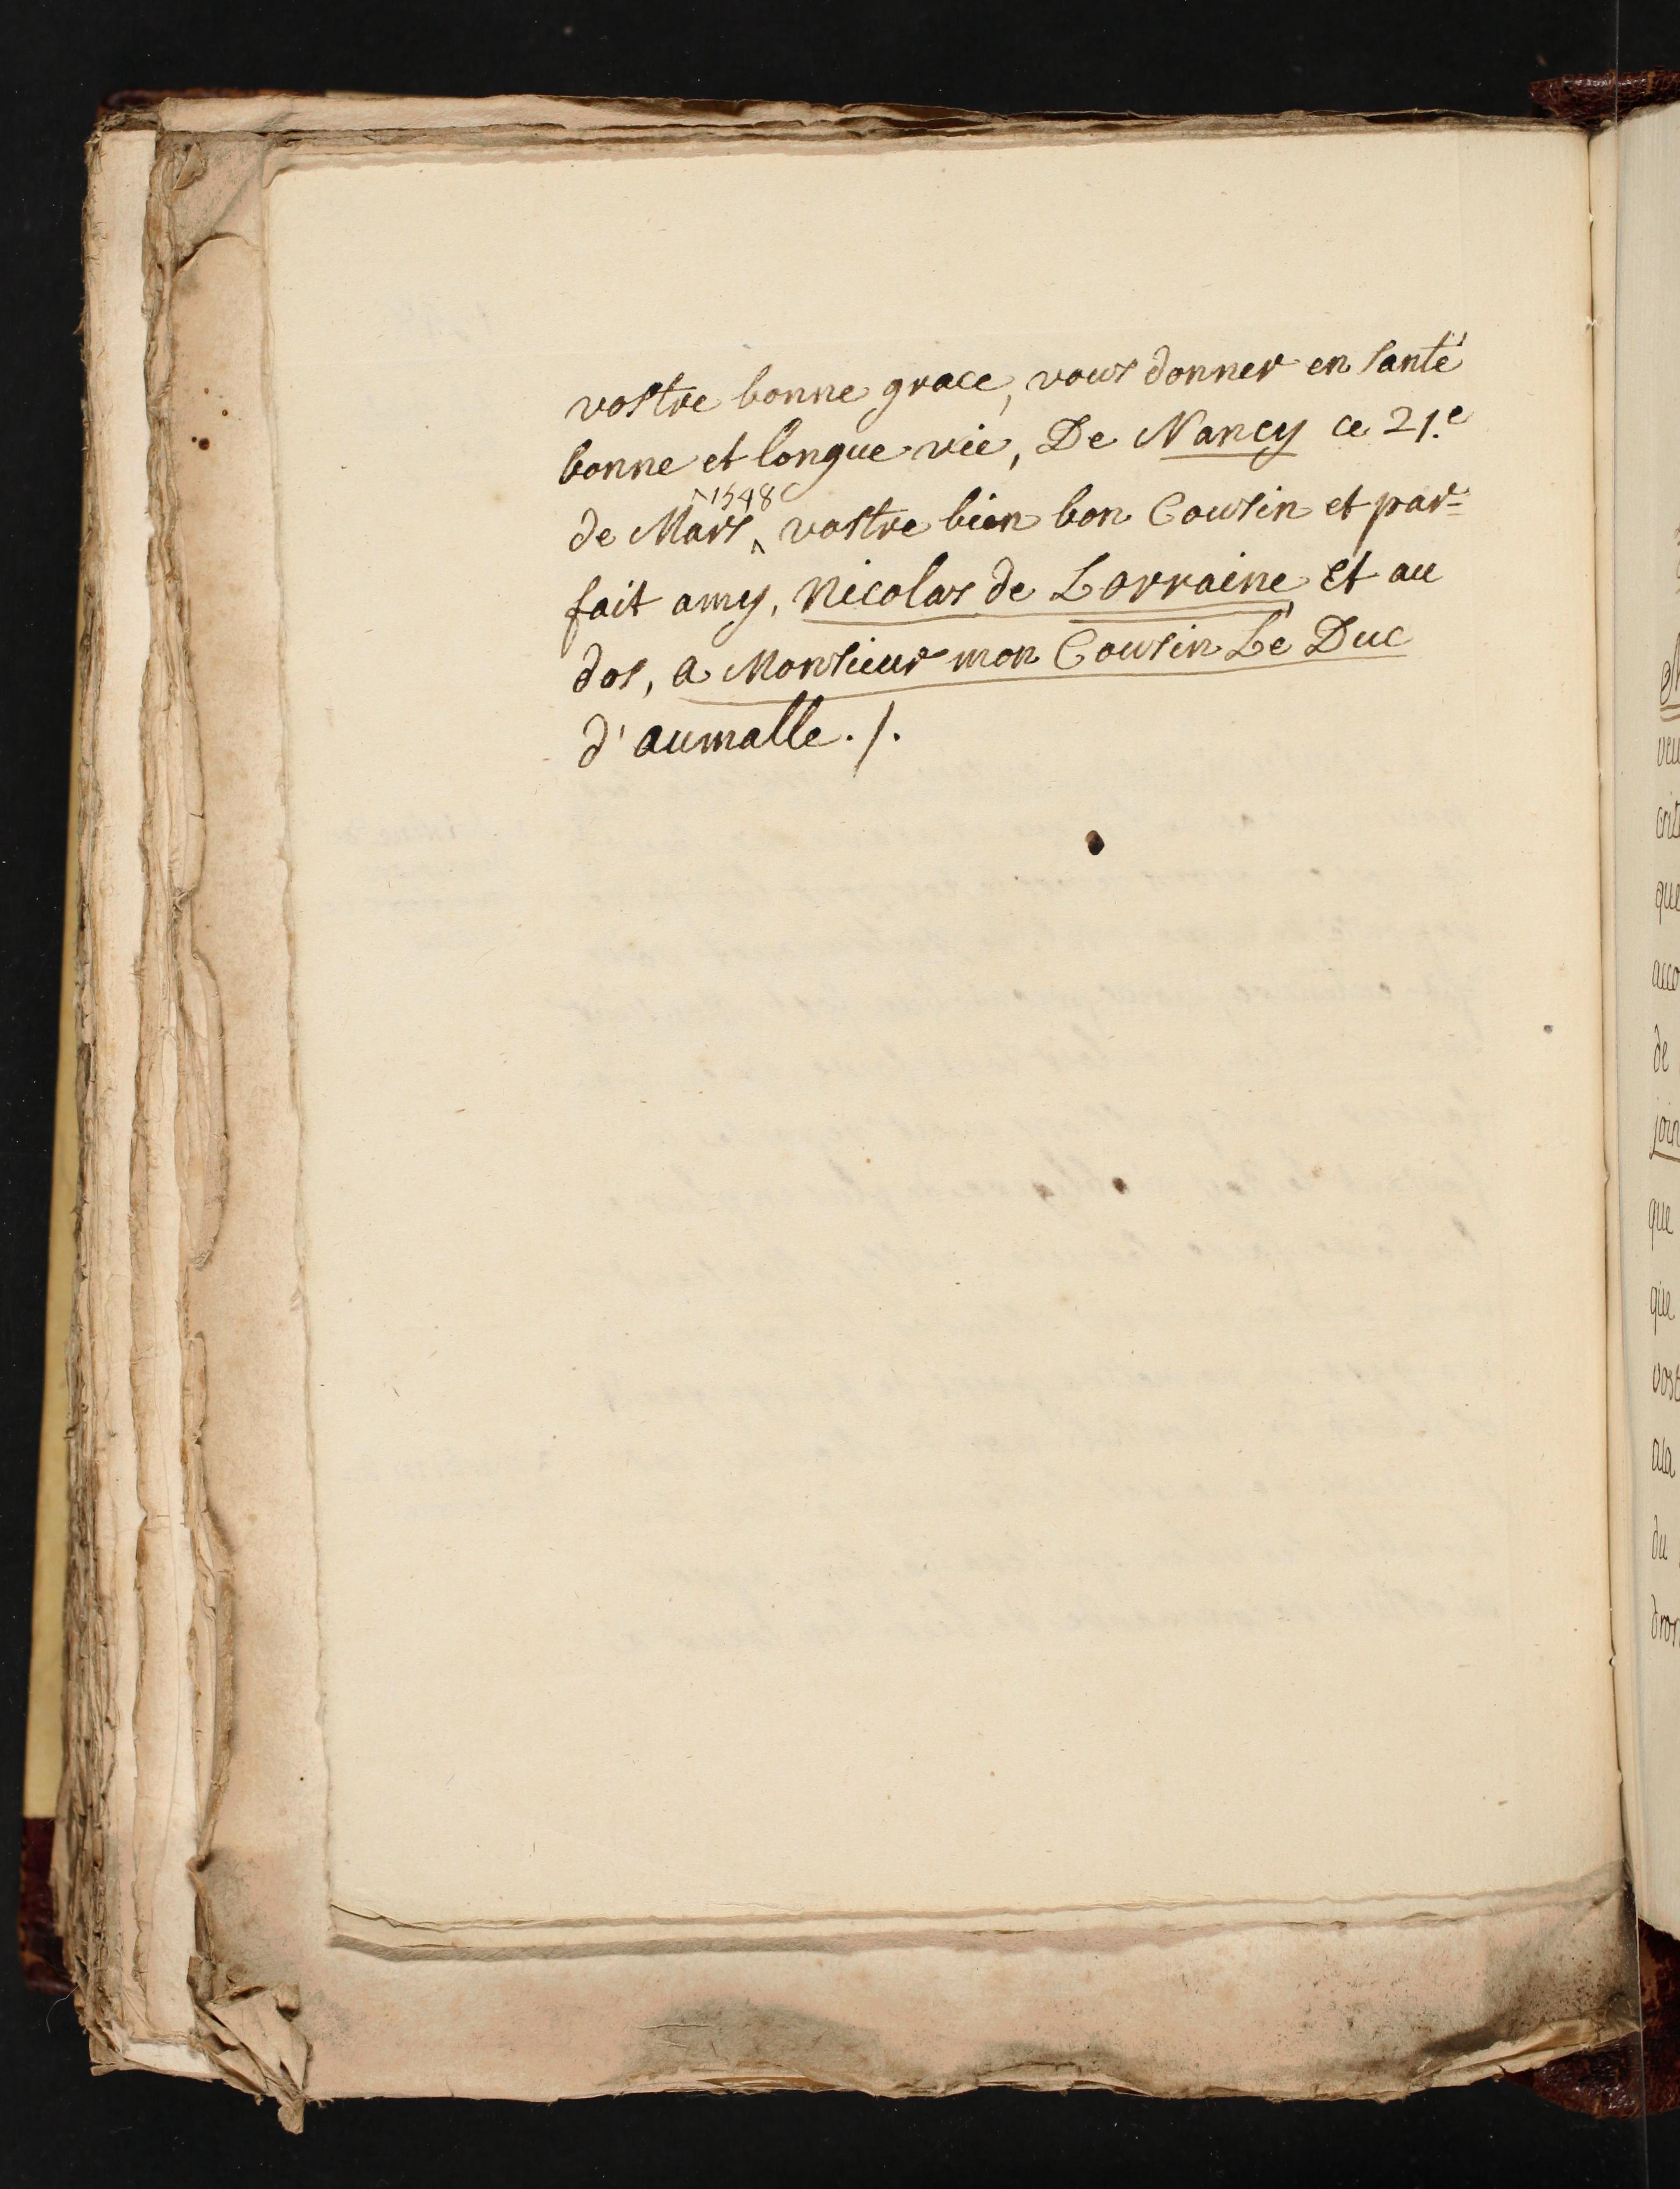 vostre bonne grace, vous donner en santé
bonne et longue vie, De Nancy ce 21.e
de Mars ^1548 vostre bien bon Cousin et par=
fait amy, Nicolas de Lorraine, Et au
dos, a Monsieur mon Cousin Le Duc
d'aumalle ./.
veu
que
acco
de
join
que
que
vost
du